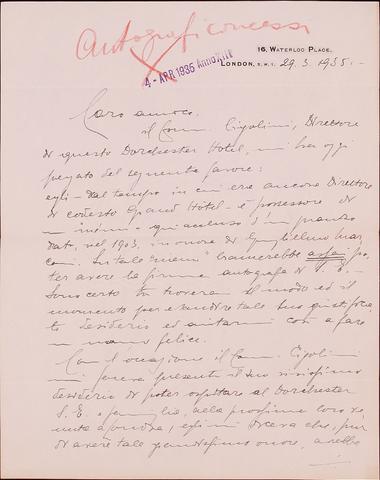 Autografi concessi
4 - APR 1935 Anno XIII
16, WATERLOO PLACE,
LONDON, S.W.1. 29.3.1935.-
Caro amico,
il Com. Cigolini, Direttore
di questo Dorchester Hotel, mi ha oggi
pregato del seguente favore:
egli - dal tempo in cui era ancora Direttore
di codesto Grand Hôtel - è possessore di
un menu - qui accluso d'un pranzo
dato, nel 1903, in onore di Guglielmo Mar
coni. Su tale menu bramerebbe assai po-
ter avere la firma autografa di
Sono certo tu troverai il modo ed il
momento per esaudire tale suo
desiderio ed aiutarmi così a fare
un uomo felice.
Con l'occasione il Com. Cigolini
mi fa presente il suo vivissimo
desiderio di poter ospitare al Dorchester
S. E. e famiglia, nella prossima loro ve
nuta a Londra; egli mi diceva che, pur
di avere tale grandissimo onore, avrebbe